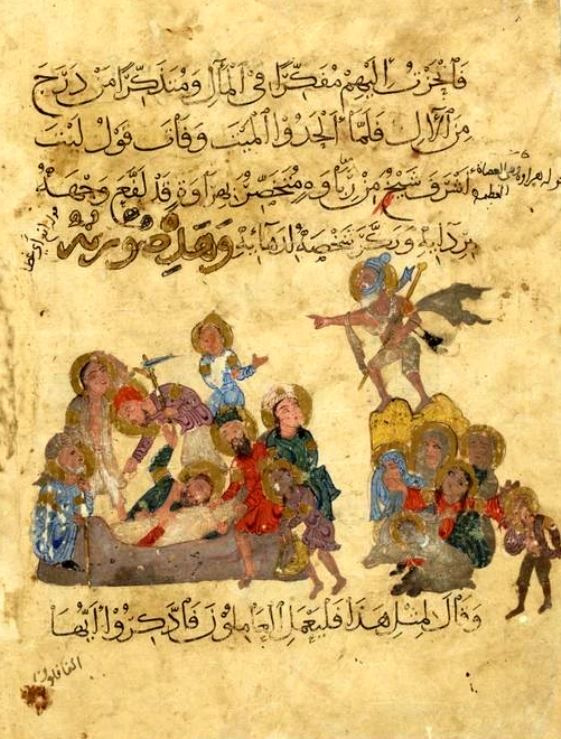 فَانْحَزْتُ اِلَيْهِمْ مُفَكِّرًا فِي الْمَآلِ وَمُتَذَكِّرًا مَنْ دَرَجَ
مِنَ الْآلِ فَلَمَّا أَلْحَدُوا الْمَيِّتَ وَفَاتَ قَوْلُ لَيْتَ
اَشْرَفَ شَيْخٌ مِنْ رُبَاوَهٍ مُتَخَصِّرٌ بِهِرَاوَةٍ قَدْ لَفَّعَ وَجْهَهُ
بِرِدَايِهِ وَنَكَّرَ شَخْصَهُ لِدَهَائِهِ وَهَذِهِ صُورَتُهُ
وَقَالَ لِمِثْلِ هَذَا فَلْيَعْمَلِ الْعَامِلُونَ فَادَّكِرُوا اَيُّهَا
الغافلون